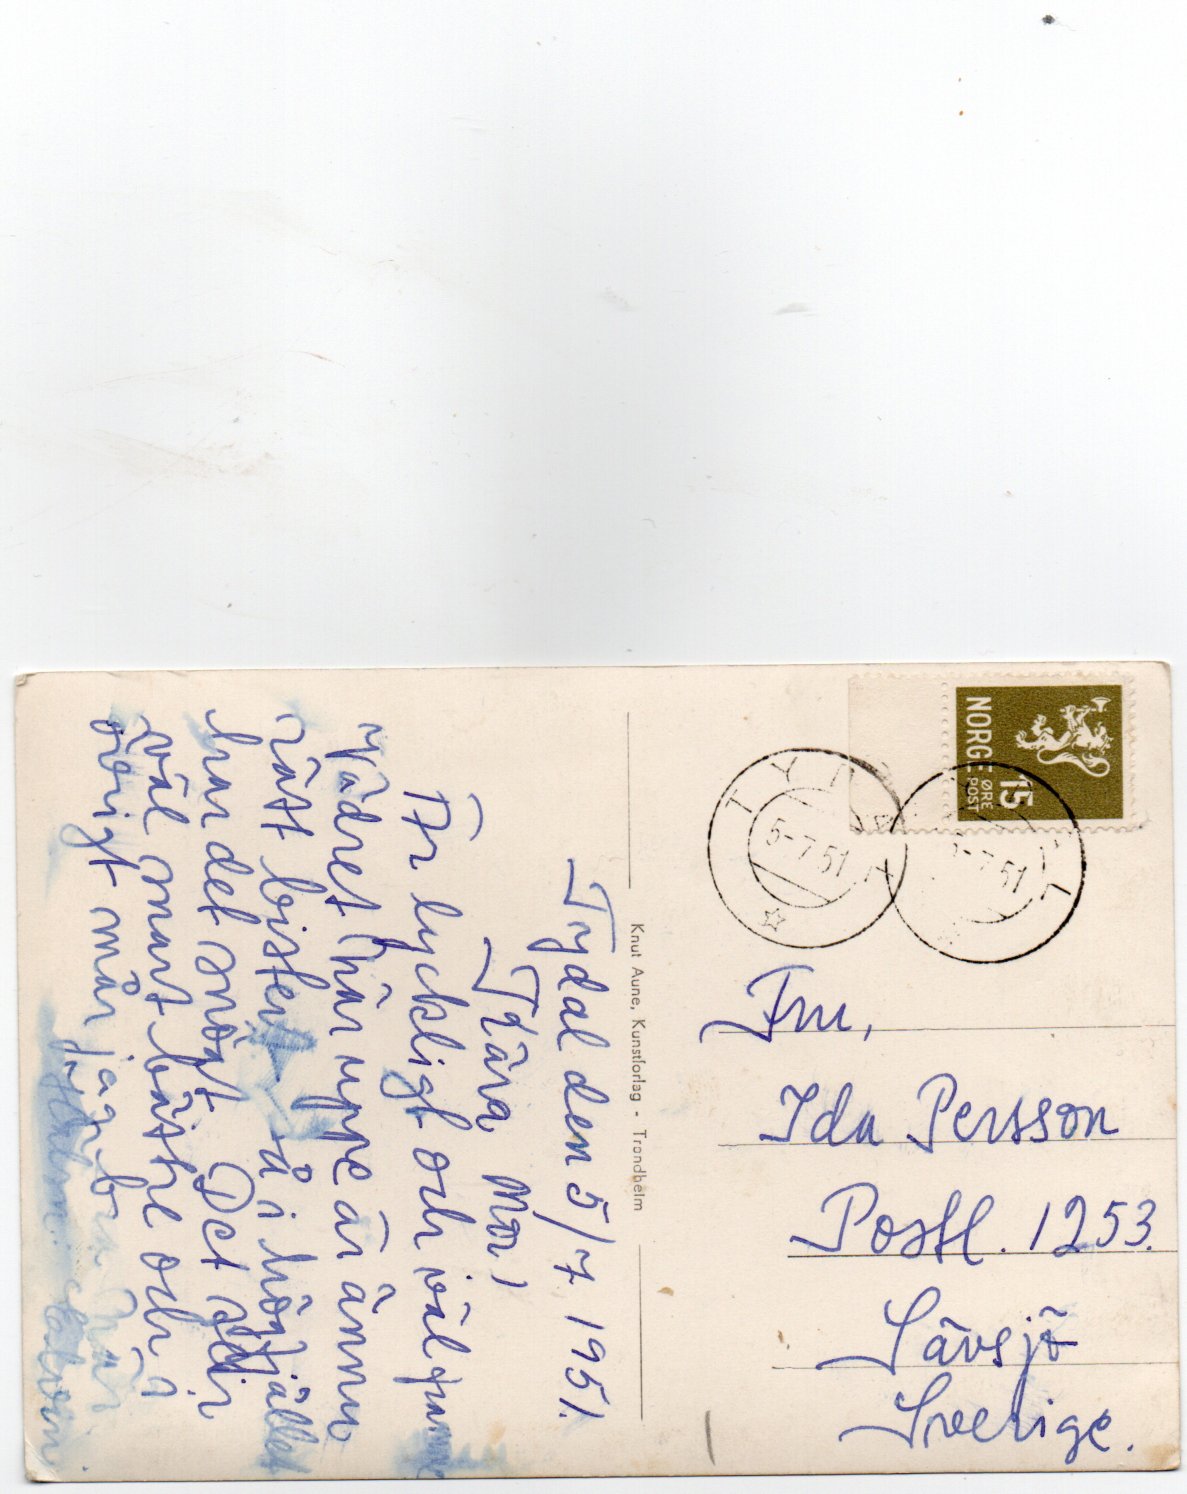 Tydal den 5/7 1951.
Kära Mor!
Är lyckligt och väl framme
Vädret här uppe är ännu
rätt bistert, så i högfjället
har det snögt. Det blir
väl snart bättre och i
övrigt mår jag bra här
Edvin.
Knut Aune, Kunstforlag - Trondhelm
NORGE
15
ØRE
POST
TYDAL
5-7 51
5-7 51
Fru,
Ida Persson
Postl. 1253.
Sävsjö
Sverige.